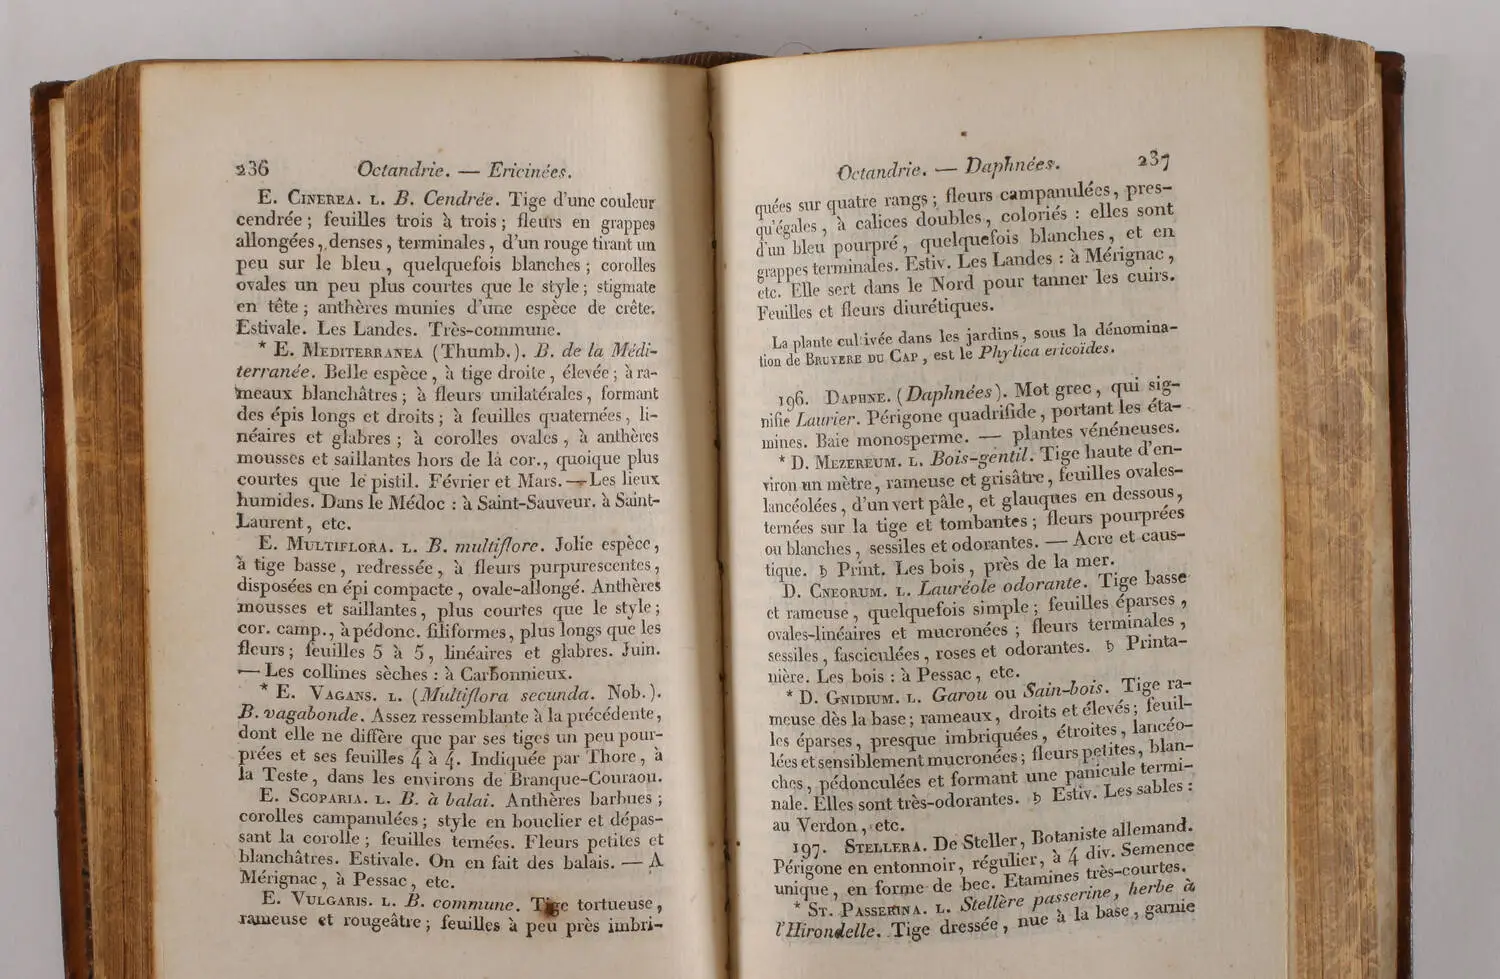 236 Octandrie. — Ericinées.
E. Cinerea. L. B. Cendrée. Tige d'une couleur
cendrée ; feuilles trois à trois ; fleurs en grappes
allongées, denses, terminales, d'un rouge tirant un
peu sur le bleu, quelquefois blanches ; corolles
ovales un peu plus courtes que le style ; stigmate
en tête ; anthères munies d'une espèce de crête.
Estivale. Les Landes. Très-commune.
* E. Mediterranea (Thumb.). B. de la Médi-
terranée. Belle espèce, à tige droite, élevée ; à ra-
meaux blanchâtres ; à fleurs unilatérales, formant
des épis longs et droits ; à feuilles quaternées, li-
néaires et glabres ; à corolles ovales, à anthères
mousses et saillantes hors de la cor., quoique plus
courtes que le pistil. Février et Mars. — Les lieux
humides. Dans le Médoc : à Saint-Sauveur. à Saint-
Laurent, etc.
E. Multiflora. L. B. multiflore. Jolie espèce,
à tige basse, redressée, à fleurs purpurescentes,
disposées en épi compacte, ovale-allongé. Anthères
mousses et saillantes, plus courtes que le style ;
cor. camp., à pédonc. filiformes, plus longs que les
fleurs ; feuilles 5 à 5, linéaires et glabres. Juin.
— Les collines sèches : à Carbonnieux.
* E. Vagans. L. (Multiflora secunda. Nob.).
B. vagabonde. Assez ressemblante à la précédente,
dont elle ne diffère que par ses tiges un peu pour-
prées et ses feuilles 4 à 4. Indiquée par Thore, à
la Teste, dans les environs de Branque-Couraou.
E. Scoparia. L. B. à balai. Anthères barbues ;
corolles campanulées ; style en bouclier et dépas-
sant la corolle ; feuilles ternées. Fleurs petites et
blanchâtres. Estivale. On en fait des balais. — A
Mérignac, à Pessac, etc.
E. Vulgaris. L. B. commune. Tige tortueuse,
rameuse et rougeâtre ; feuilles à peu près imbri-
Octandrie. — Daphnées. 237
quées sur quatre rangs ; fleurs campanulées, pres-
qu'égales, à calices doubles, coloriés : elles sont
d'un bleu pourpré, quelquefois blanches, et en
grappes terminales. Estiv. Les Landes : à Mérignac,
etc. Elle sert dans le Nord pour tanner les cuirs.
Feuilles et fleurs diurétiques.
La plante cultivée dans les jardins, sous la dénomina-
tion de Bruyere du Cap, est le Phylica ericoides.
196. Daphne. (Daphnées). Mot grec, qui sig-
nifie Laurier. Périgone quadrifide, portant les éta-
mines. Baie monosperme. — plantes vénéneuses.
* D. Mezereum. L. Bois-gentil. Tige haute d'en-
viron un mètre, rameuse et grisâtre, feuilles ovales-
lancéolées, d'un vert pâle, et glauques en dessous,
ternées sur la tige et tombantes ; fleurs pourprées
ou blanches, sessiles et odorantes. — Acre et caus-
tique. ♄ Print. Les bois, près de la mer.
D. Cneorum. L. Lauréole odorante. Tige basse
et rameuse, quelquefois simple ; feuilles éparses,
ovales-linéaires et mucronées ; fleurs terminales,
sessiles, fasciculées, roses et odorantes. ♄ Printa-
nière. Les bois : à Pessac, etc.
* D. Gnidium. L. Garou ou Sain-bois. Tige ra-
meuse dès la base ; rameaux, droits et élevés ; feuil-
les éparses, presque imbriquées, étroites, lancéo-
lées et sensiblement mucronées ; fleurs petites, blan-
ches, pédonculées et formant une panicule termi-
nale. Elles sont très-odorantes. ♄ Estiv. Les sables :
au Verdon, etc.
197. Stellera. De Steller, Botaniste allemand.
Périgone en entonnoir, régulier, à 4 div. Semence
unique, en forme de bec. Etamines très-courtes.
* St. Passerina. L. Stellère passerine, herbe à
l'Hirondelle. Tige dressée, nue à la base, garnie